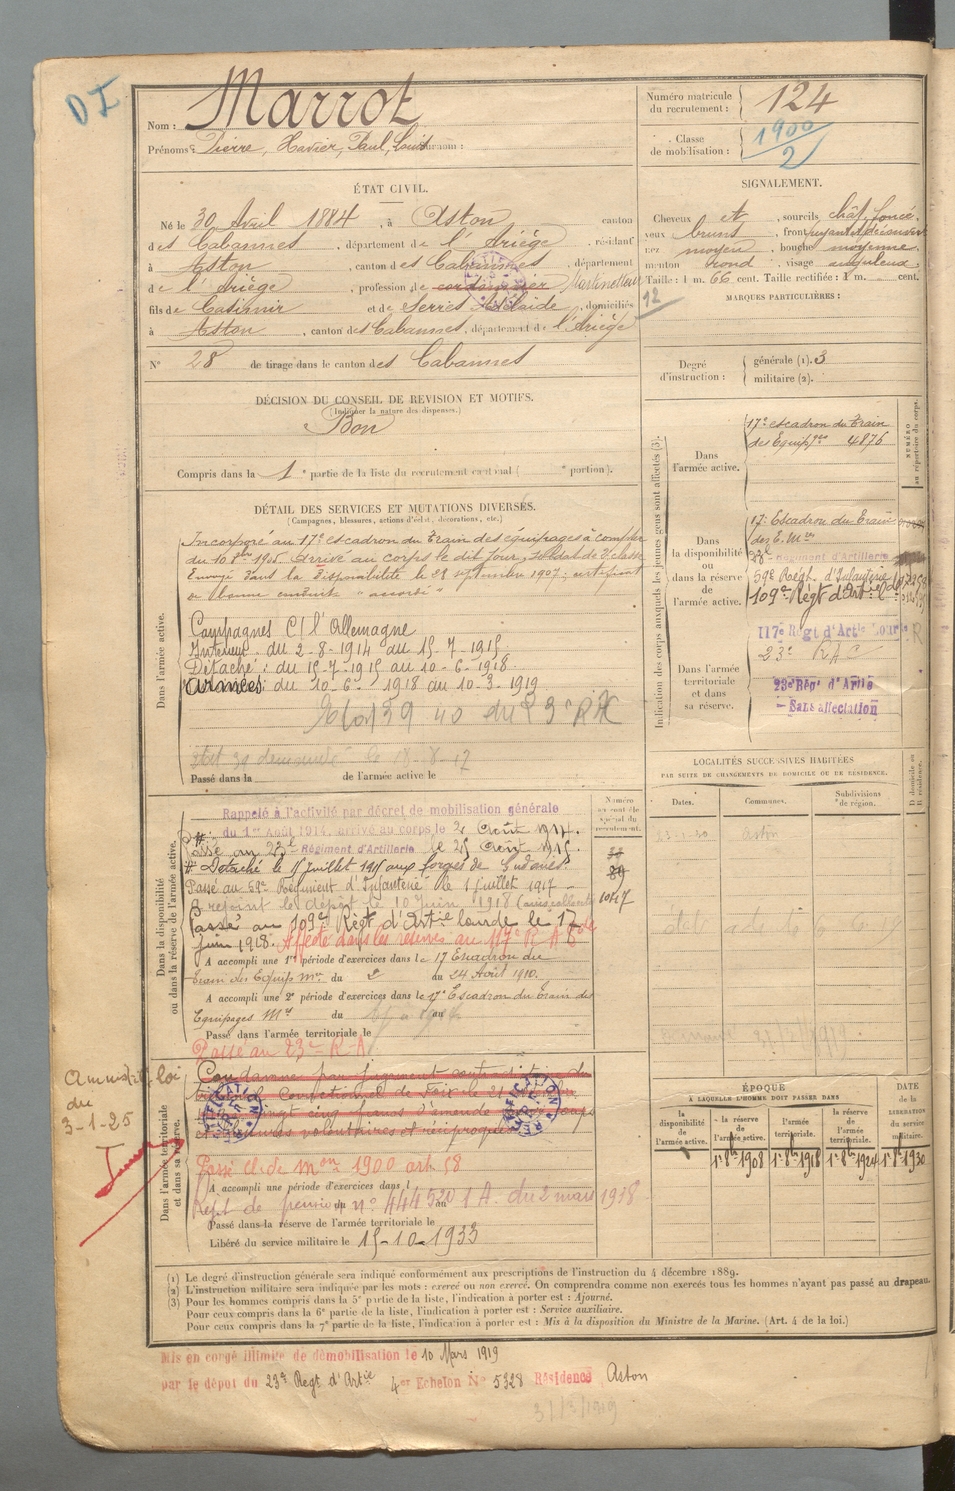 DI
Nom : Marrot
Prénoms : Pierre, Xavier, Paul, Louis Surnom :
Numéro matricule du recrutement : 124
Classe de mobilisation : 1900 / 2
ÉTAT CIVIL.
Né le 30 Avril 1884, à Aston canton
des Cabannes, département de l'Ariège, résidant
à Aston, canton des Cabannes, département
de l'Ariège, profession de cordonnier Martineteur
fils de Casimir et de Serres Adélaide, domiciliés
à Aston, canton des Cabannes, département de l'Ariège
12
N° 28 de tirage dans le canton des Cabannes
SIGNALEMENT.
Cheveux et, sourcils chât. foncé
yeux bruns, front
nez moyen, bouche moyenne
menton rond, visage anguleux
Taille : 1 m. 66 cent. Taille rectifiée : 1 m. cent.
MARQUES PARTICULIÈRES :
Degré d'instruction : générale (1). 3
militaire (2).
DÉCISION DU CONSEIL DE REVISION ET MOTIFS.
(Indiquer la nature des dispenses.)
Bon
Compris dans la 1e partie de la liste du recrutement cantonal ( e portion).
DÉTAIL DES SERVICES ET MUTATIONS DIVERSES.
(Campagnes, blessures, actions d'éclat, décorations, etc.)
Dans l'armée active.
Incorporé au 17e escadron du Train des équipages à compter
du 10 8bre 1905. Arrivé au corps le dit jour, soldat de 2e classe
Envoyé dans la disponibilité le 28 septembre 1907; certificat
de bonne conduite "accordé"
Campagnes C/ l'Allemagne
Intérieur du 2-8-1914 au 15-7-1915
Détaché : du 15-7-1915 au 10-6-1918
Armées : du 10-6-1918 au 10-3-1919
39 40 du 23e RAC
Passé dans la de l'armée active le
Dans la disponibilité ou dans la réserve de l'armée active.
Rappelé à l'activité par décret de mobilisation générale
du 1er Août 1914, arrivé au corps le 2 Août 1914.
Passé au 23e Régiment d'Artillerie le 25 Août 1915.
Détaché le 15 Juillet 1915 aux forges de
Passé au 59e Régiment d'Infanterie le 1 juillet 1917
A rejoint le dépôt le 10 Juin 1918
Passé au 109e Régt d'Artie lourde le 17
juin 1918. Affecté dans les réserves au 117e R A L
A accompli une 1re période d'exercices dans le 17 Escadron du
Train des Equip. Mres du 2 au 24 Août 1910.
A accompli une 2e période d'exercices dans le 17e Escadron du Train des
Equipages Mres du au
Passé dans l'armée territoriale le
Passé au 23e R. A.
Numéro au contrôle spécial du recrutement.
Amnistié loi
du
3-1-25
Dans l'armée territoriale et dans sa réserve.
Condamné par jugement contradictoire du
tribunal Correctionnel de Foix le 21
vingt cinq francs d'amende pour coups
et blessures volontaires et réciproques
Passé cl. de mon 1900 art 58
A accompli une période d'exercices dans l
du au
Passé dans la réserve de l'armée territoriale le
Libéré du service militaire le 15-10-1933
Indication des corps auxquels les jeunes gens sont affectés (3).
NUMÉRO au répertoire du corps.
Dans l'armée active.
17e escadron du Train
des Equipges 4876
Dans la disponibilité ou dans la réserve de l'armée active.
17e Escadron du Train
des E. Mres
23e Régiment d'Artillerie
59e Régt. d'Infanterie
109e Régt d'Artie Lde
117e Régt d'Artie Lourde
Dans l'armée territoriale et dans sa réserve.
23e RAC
23e Régt d'Artie
Sans affectation
LOCALITÉS SUCCESSIVES HABITÉES
PAR SUITE DE CHANGEMENTS DE DOMICILE OU DE RÉSIDENCE.
Dates. Communes. Subdivisions de région. D domicile ou R résidence.
Aston
ÉPOQUE
À LAQUELLE L'HOMME DOIT PASSER DANS
la disponibilité de l'armée active. la réserve de l'armée active. l'armée territoriale. la réserve de l'armée territoriale. DATE de la LIBÉRATION DU service militaire.
1er 8bre 1908 1er 8bre 1918 1er 8bre 1924 1er 8bre 1930
(1) Le degré d'instruction générale sera indiqué conformément aux prescriptions de l'instruction du 4 décembre 1889.
(2) L'instruction militaire sera indiquée par les mots : exercé ou non exercé. On comprendra comme non exercés tous les hommes n'ayant pas passé au drapeau.
(3) Pour les hommes compris dans la 5e partie de la liste, l'indication à porter est : Ajourné.
Pour ceux compris dans la 6e partie de la liste, l'indication à porter est : Service auxiliaire.
Pour ceux compris dans la 7e partie de la liste, l'indication à porter est : Mis à la disposition du Ministre de la Marine. (Art. 4 de la loi.)
Mis en congé illimité de démobilisation le 10 Mars 1919
par le dépôt du 23e Régt d'Artie 4er Echelon N° 5328 Résidence Aston